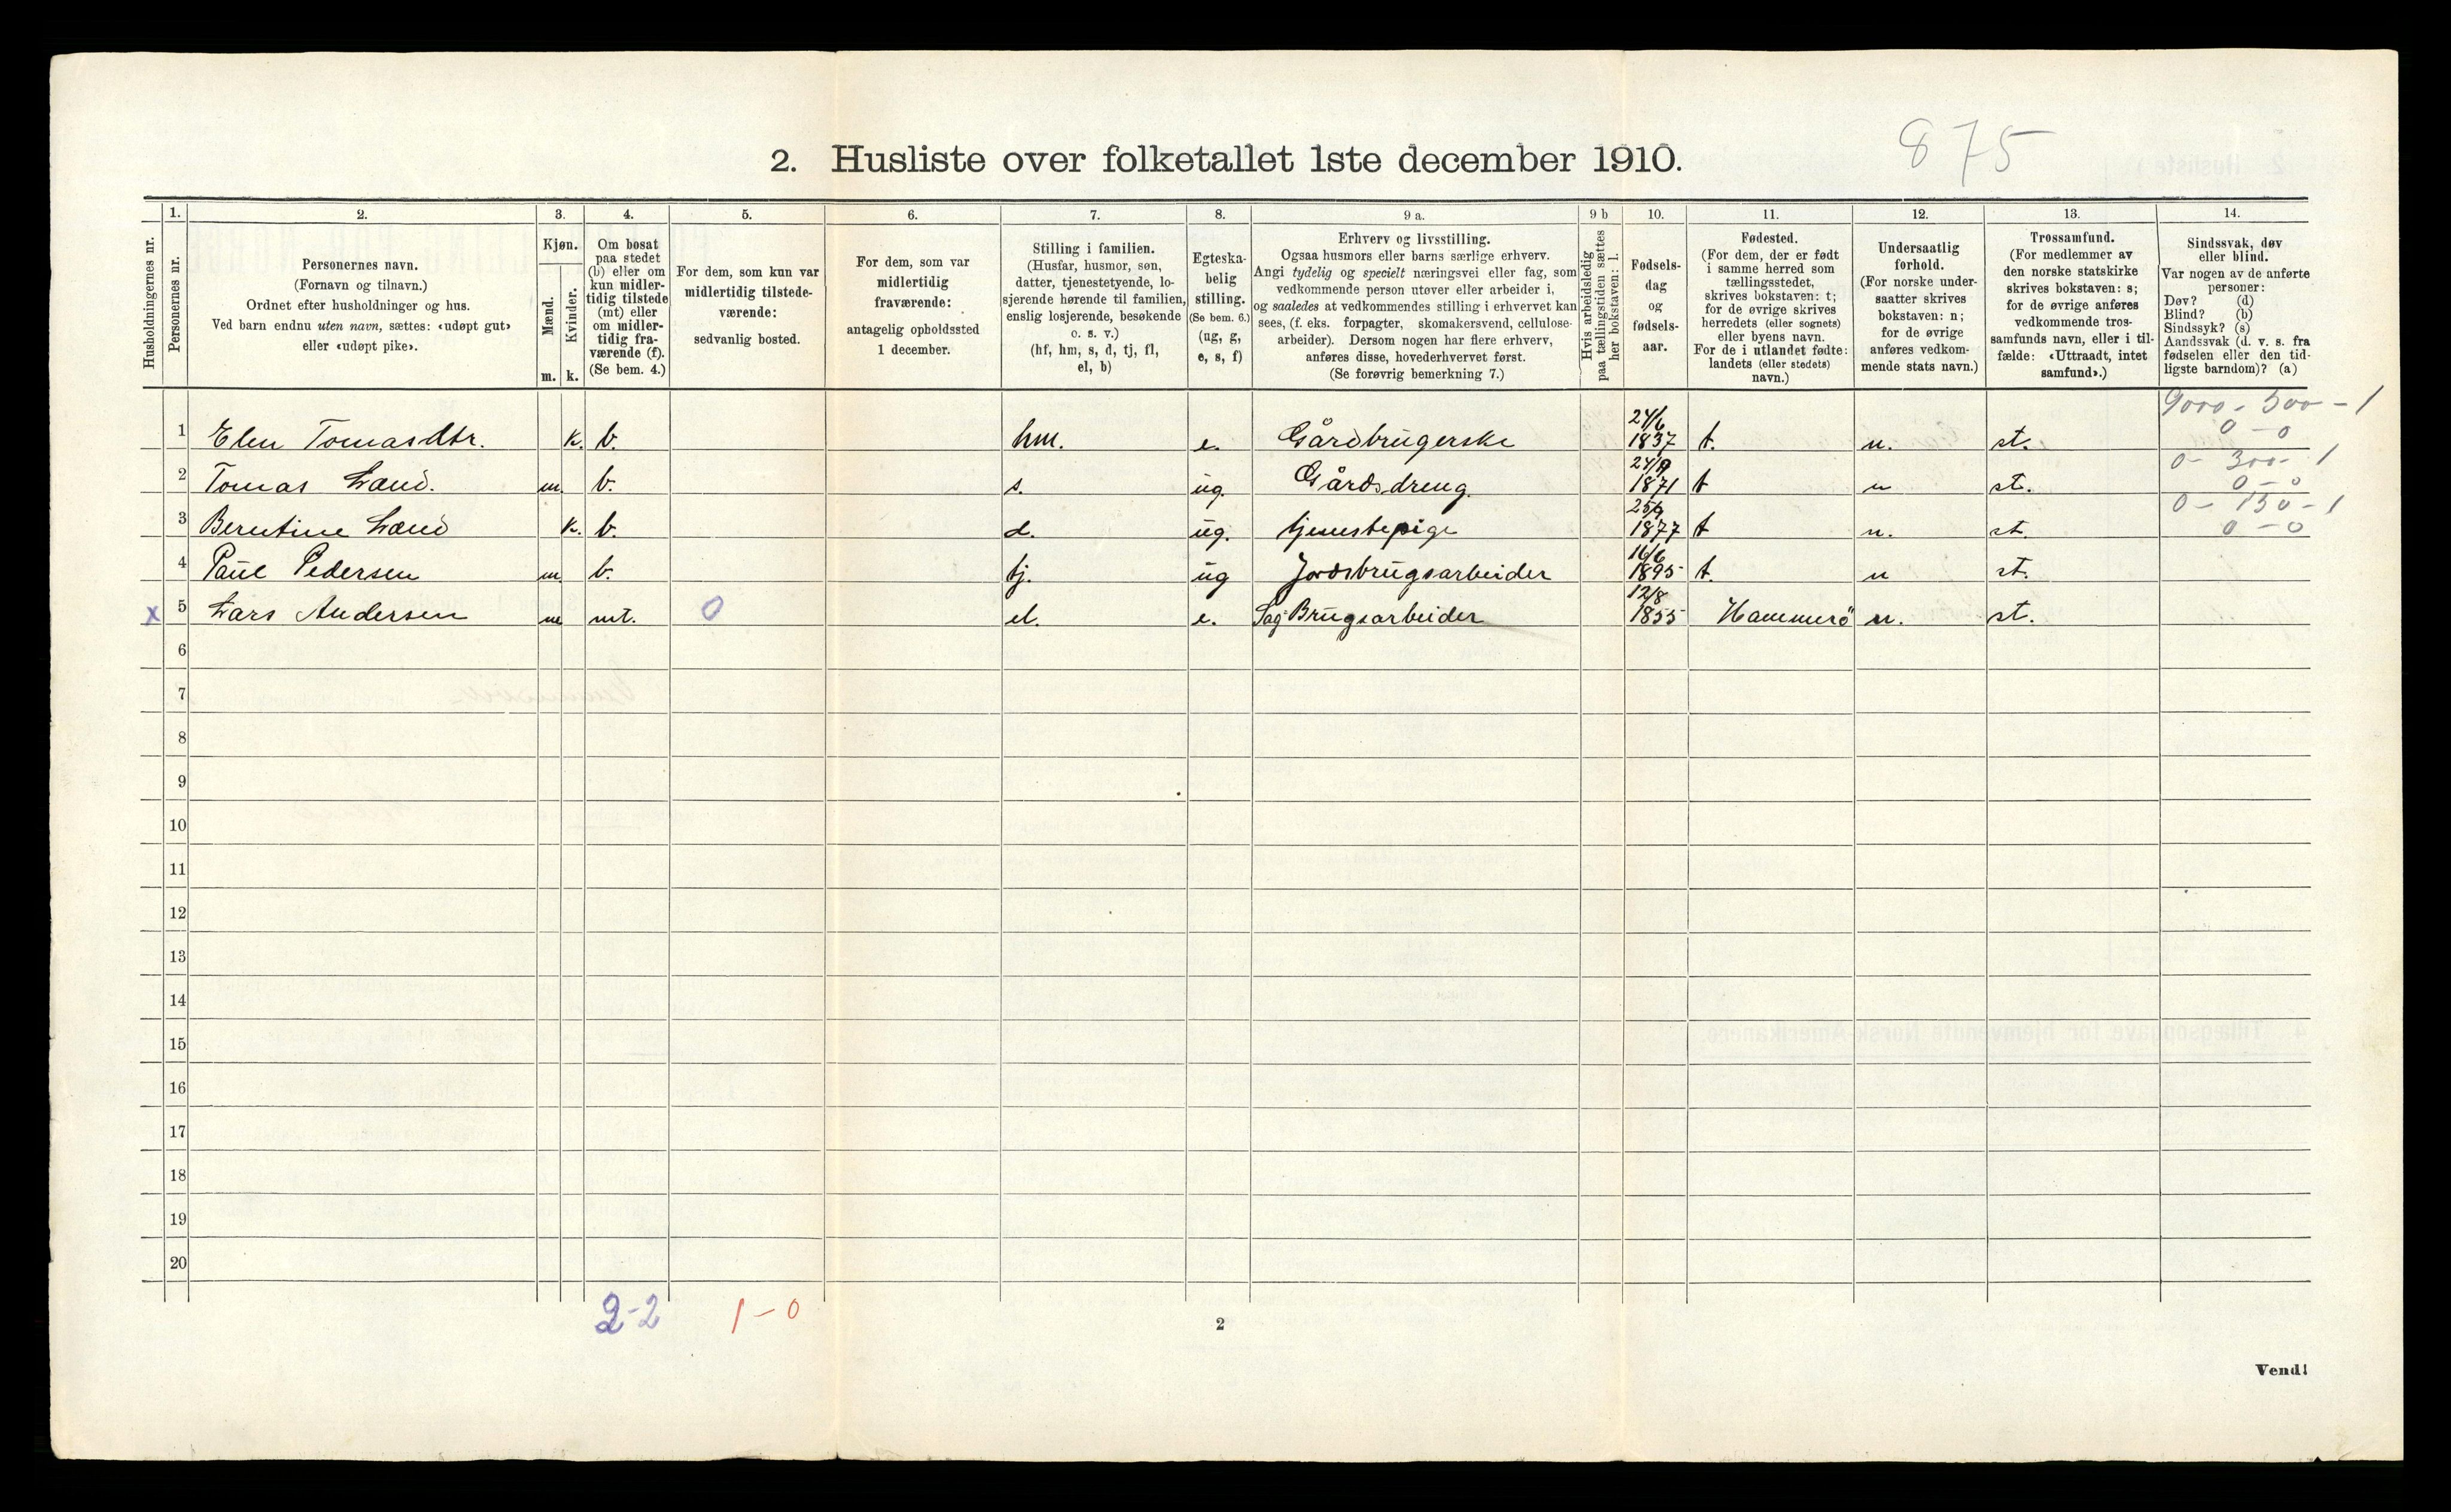 875
2. Husliste over folketallet 1ste december 1910.
Husholdningernes nr.
1.
Personernes nr.
2.
Personernes navn.
(Fornavn og tilnavn.)
Ordnet efter husholdninger og hus.
Ved barn endnu uten navn, sættes: «udøpt gut»
eller «udøpt pike».
3.
Kjøn.
Mænd.
Kvinder.
m. k.
4.
Om bosat
paa stedet
(b) eller om
kun midler-
tidig tilstede
(mt) eller
om midler-
tidig fra-
værende (f).
(Se bem. 4.)
5.
For dem, som kun var
midlertidig tilstede-
værende:
sedvanlig bosted.
6.
For dem, som var
midlertidig
fraværende:
antagelig opholdssted
1 december.
7.
Stilling i familien.
(Husfar, husmor, søn,
datter, tjenestetyende, lo-
sjerende hørende til familien,
enslig losjerende, besøkende
o. s. v.)
(hf, hm, s, d, tj, fl,
el, b)
8.
Egteska-
belig
stilling.
(Se bem. 6.)
(ug, g,
e, s, f)
9 a.
Erhverv og livsstilling.
Ogsaa husmors eller barns særlige erhverv.
Angi tydelig og specielt næringsvei eller fag, som
vedkommende person utøver eller arbeider i,
og saaledes at vedkommendes stilling i erhvervet kan
sees, (f. eks. forpagter, skomakersvend, cellulose-
arbeider). Dersom nogen har flere erhverv,
anføres disse, hovederhvervet først.
(Se forøvrig bemerkning 7.)
9 b
Hvis arbeidsledig
paa tællingstiden sættes
her bokstaven: l.
10.
Fødsels-
dag
og
fødsels-
aar.
11.
Fødested.
(For dem, der er født
i samme herred som
tællingsstedet,
skrives bokstaven: t;
for de øvrige skrives
herredets (eller sognets)
eller byens navn.
For de i utlandet fødte:
landets (eller stedets)
navn.)
12.
Undersaatlig
forhold.
(For norske under-
saatter skrives
bokstaven: n;
for de øvrige
anføres vedkom-
mende stats navn.)
13.
Trossamfund.
(For medlemmer av
den norske statskirke
skrives bokstaven: s;
for de øvrige anføres
vedkommende tros-
samfunds navn, eller i til-
fælde: «Uttraadt, intet
samfund».)
14.
Sindssvak, døv
eller blind.
Var nogen av de anførte
personer:
Døv? (d)
Blind? (b)
Sindssyk? (s)
Aandssvak (d. v. s. fra
fødselen eller den tid-
ligste barndom)? (a)
9000 - 500 - 1
1 Elen Tomasdtr. k. b. hm. e. Gårdbrugerske 24/6 1837 t. n. st. 0 - 0
0 - 300 - 1
2 Tomas Lænd. m. b. s. ug. Gårdsdreng 24/9 1871 t n st. 0 - 0
0 - 150 - 1
3 Berntine Lænd k. b. d. ug. tjenestepige 1877 t n. st. 0 - 0
4 Paul Pedersen m. b. tj. ug Jordsbrugsarbeider 16/6 1895 t. n st.
x 5 Lars Andersen m mt. 0 el. e. Sag Brugsarbeider 12/8 1855 Hammerö n. st.
6
7
8
9
10
11
12
13
14
15
16
17
18
19
20
2-2 1-0
2
Vend!